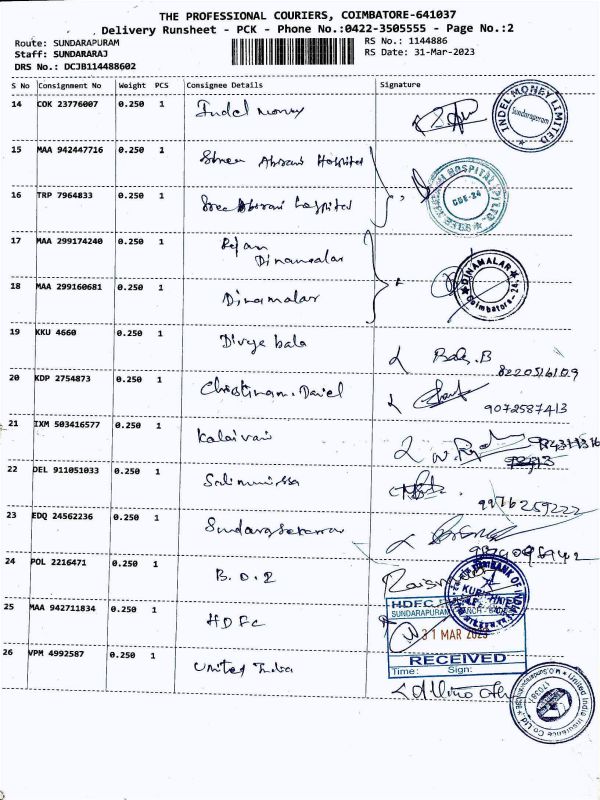 THE PROFESSIONAL COURIERS, COIMBATORE-641037
Delivery Runsheet - PCK - Phone No.:0422-3505555 - Page No.:2
Route: SUNDARAPURAM
RS No.: 1144886
Staff: SUNDARARAJ
RS Date: 31-Mar-2023
DRS No.: DCJB114488602
S No Consignment No Weight PCS Consignee Details Signature
14 COK 23776007 0.250 1 Indel money
INDEL MONEY LIMITED
Sundarapuram
15 MAA 942447716 0.250 1 Shree Abirami Hospital
16 TRP 7964833 0.250 1 Sree Abirami hospital
CBE-24
17 MAA 299174240 0.250 1
Dinamalar
18 MAA 299160681 0.250 1 Dinamalar
DINAMALAR
Coimbatore-24
19 KKU 4660 0.250 1 Divya bala Bala.B
8220516109
20 KDP 2754873 0.250 1 Christina. Daniel
9072587413
21 IXM 503416577 0.250 1 Kalaivani
22 DEL 911051033 0.250 1 Salimunissa
9976259222
23 EDQ 24562236 0.250 1
24 POL 2216471 0.250 1 B.O.I
BANK OF INDIA
25 MAA 942711834 0.250 1 HDFC
HDFC
SUNDARAPURAM
31 MAR 2023
RECEIVED
Time: Sign:
26 VPM 4992587 0.250 1 United India
United India Insurance Co Ltd